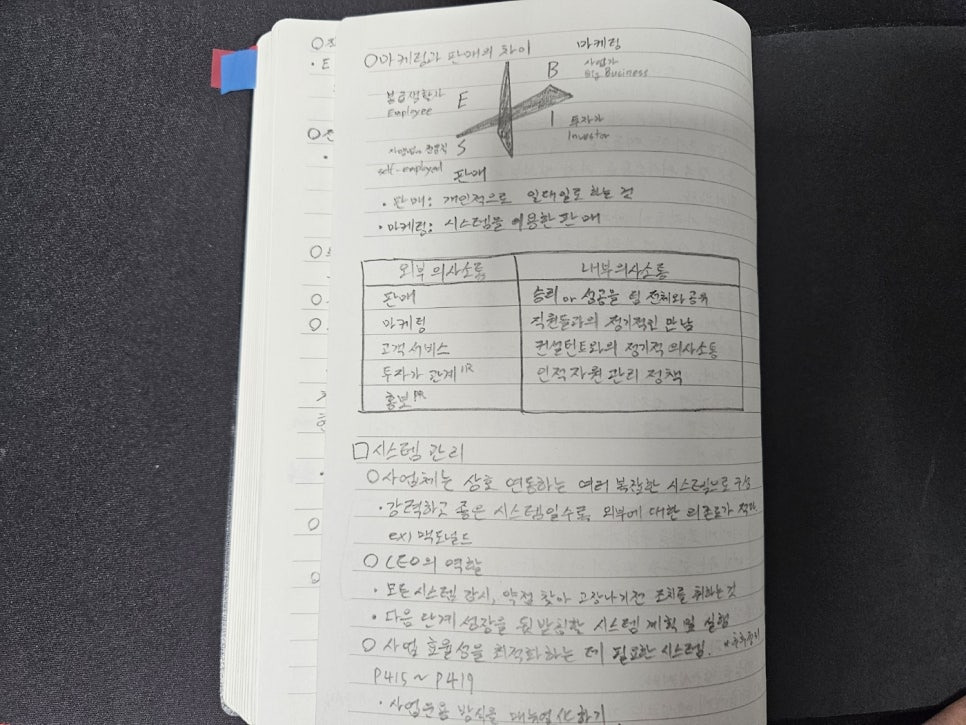 ○마케팅과 판매의 차이
마케팅
B 사업가
Big Business
봉급생활자 E
Employee
I 투자가
Investor
자영업 or 전문직 S
self-employed 판매
· 판매: 개인적으로 일대일로 하는 것
· 마케팅: 시스템을 이용한 판매
외부 의사소통 내부 의사소통
판매 승리 or 성공을 팀 전체와 공유
마케팅 직원들과의 정기적인 만남
고객 서비스 컨설턴트와의 정기적 의사소통
투자가 관계 IR 인적자원 관리 정책
홍보 PR
□ 시스템 관리
○사업체는 상호 연동하는 여러 복잡한 시스템으로 구성
· 강력하고 좋은 시스템일수록 외부에 대한 의존도가 적다
ex) 맥도널드
○ CEO의 역할
· 모든 시스템 감시, 약점 찾아 고장나기전 조치를 취하는 것
· 다음 단계 성장을 뒷받침할 시스템 계획 및 실행
○ 사업 효율성을 최적화하는 데 필요한 시스템.
P415 ~ P419
· 사업운용 방식을 매뉴얼화하기